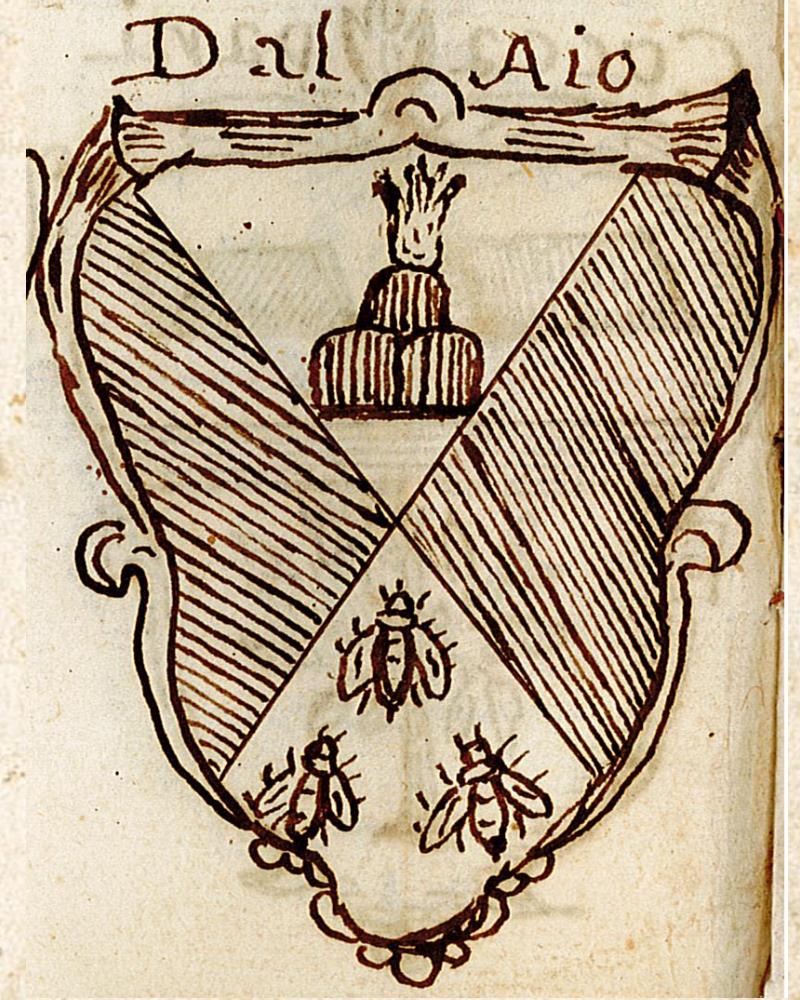 Dal Aio